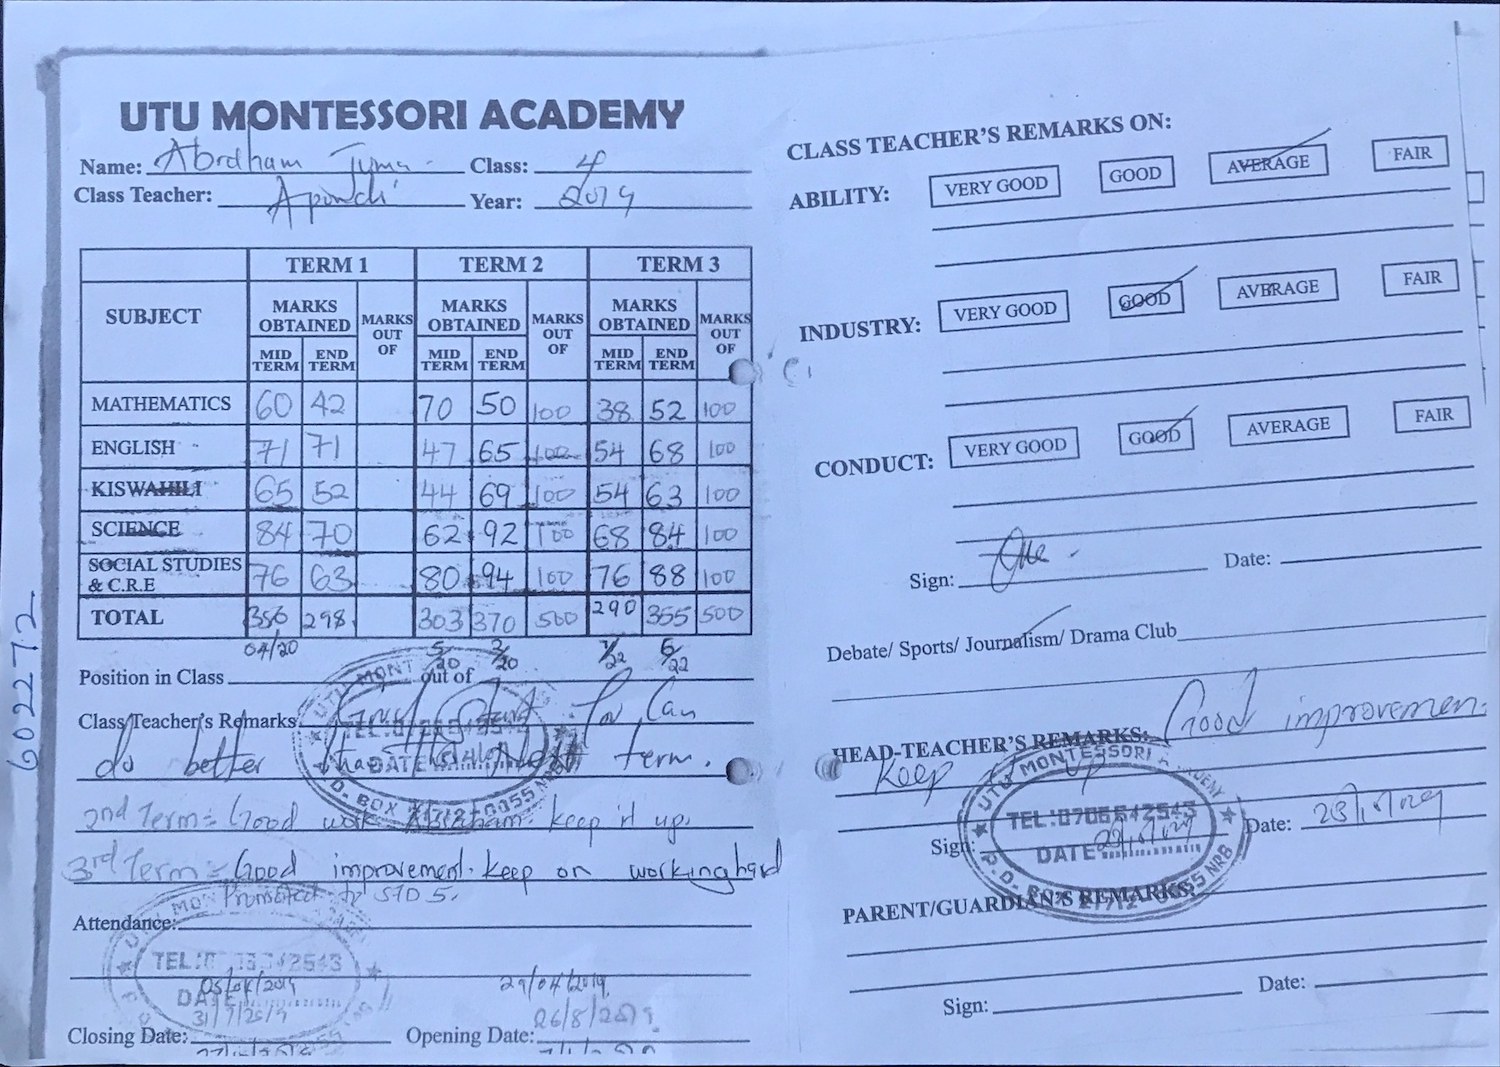 UTU MONTESSORI ACADEMY
Name: Abraham Juma. Class: 4
Class Teacher: Apondi Year: 2019
TERM 1 TERM 2 TERM 3
SUBJECT MARKS OBTAINED MARKS OUT OF MARKS OBTAINED MARKS OUT OF MARKS OBTAINED MARKS OUT OF
MID TERM END TERM MID TERM END TERM MID TERM END TERM
MATHEMATICS 60 42 70 50 100 38 52 100
ENGLISH 71 71 47 65 100 54 68 100
KISWAHILI 65 52 44 69 100 54 63 100
SCIENCE 84 70 62 92 100 68 84 100
SOCIAL STUDIES & C.R.E 76 63 80 94 100 76 88 100
TOTAL 356 298 303 370 500 290 355 500
04/20 5/20 3/20 7/22 6/22
Position in Class out of
Class Teacher's Remarks You Can
do better than this next term.
2nd Term = Good work Abraham. keep it up.
3rd Term = Good improvement. keep on working hard
Promoted to STD 5.
Attendance:
TEL: 2543
05/04/2019 29/04/2019
DATE
31/7/2019 26/8/2019
Closing Date: Opening Date:
6022272
CLASS TEACHER'S REMARKS ON:
ABILITY: VERY GOOD GOOD AVERAGE FAIR
INDUSTRY: VERY GOOD GOOD AVERAGE FAIR
CONDUCT: VERY GOOD GOOD AVERAGE FAIR
Sign: Date:
Debate/ Sports/ Journalism/ Drama Club
HEAD-TEACHER'S REMARKS: Good improvemen.
Keep it up
UTU MONTESSORI
TEL:0706542543
DATE
Sign: Date:
P.O. BOX NRB
PARENT/GUARDIAN'S REMARKS:
Sign: Date: